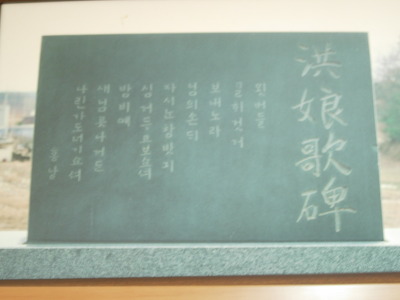 洪娘歌碑
묏버들
ᄀᆞᆯᄒᆡ것거
보내노라
님의손ᄃᆡ
자시는창밧긔
심거두고보쇼셔
밤비예
새닙곳나거든
나린가도너기쇼셔
홍낭